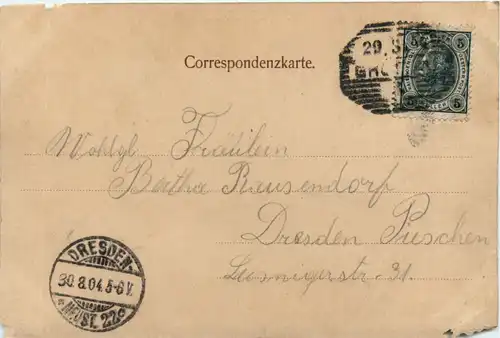 Correspondenzkarte.
29.
5 5
5 5
Wohlgl Fräulein
Bertha Rausendorf
Dresden Pieschen
Leisnigerstr. 31.
DRESDEN-
30.8.04.5-6V.
NEUST. 22c